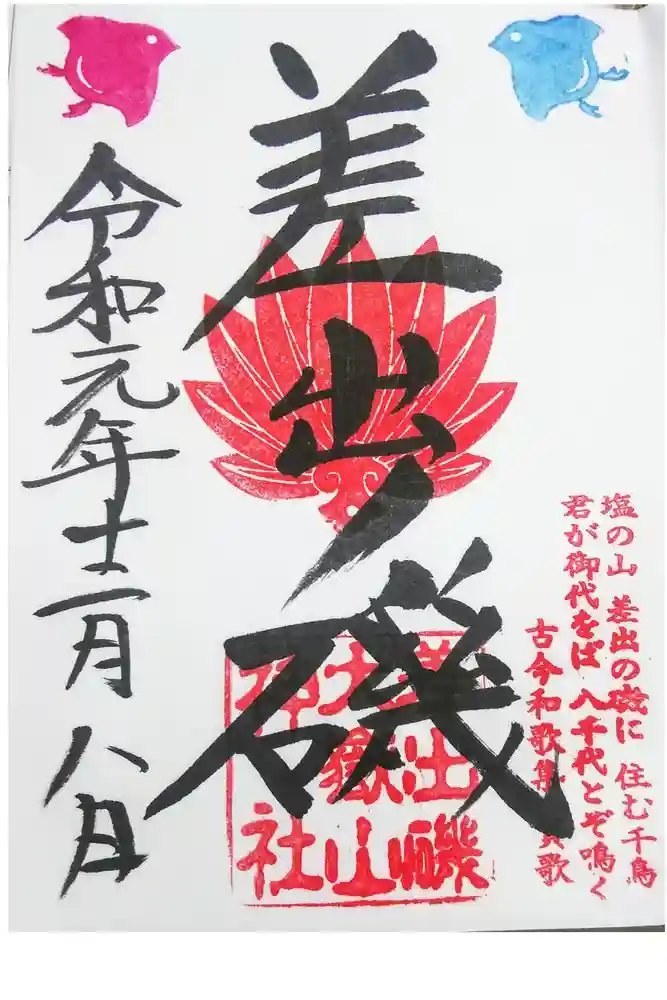 塩の山 差出の磯に 住む千鳥
君が御代をば 八千代とぞ鳴く
古今和歌集 賀歌
差出ノ磯
差出磯
大嶽山
神社
令和元年十二月八日